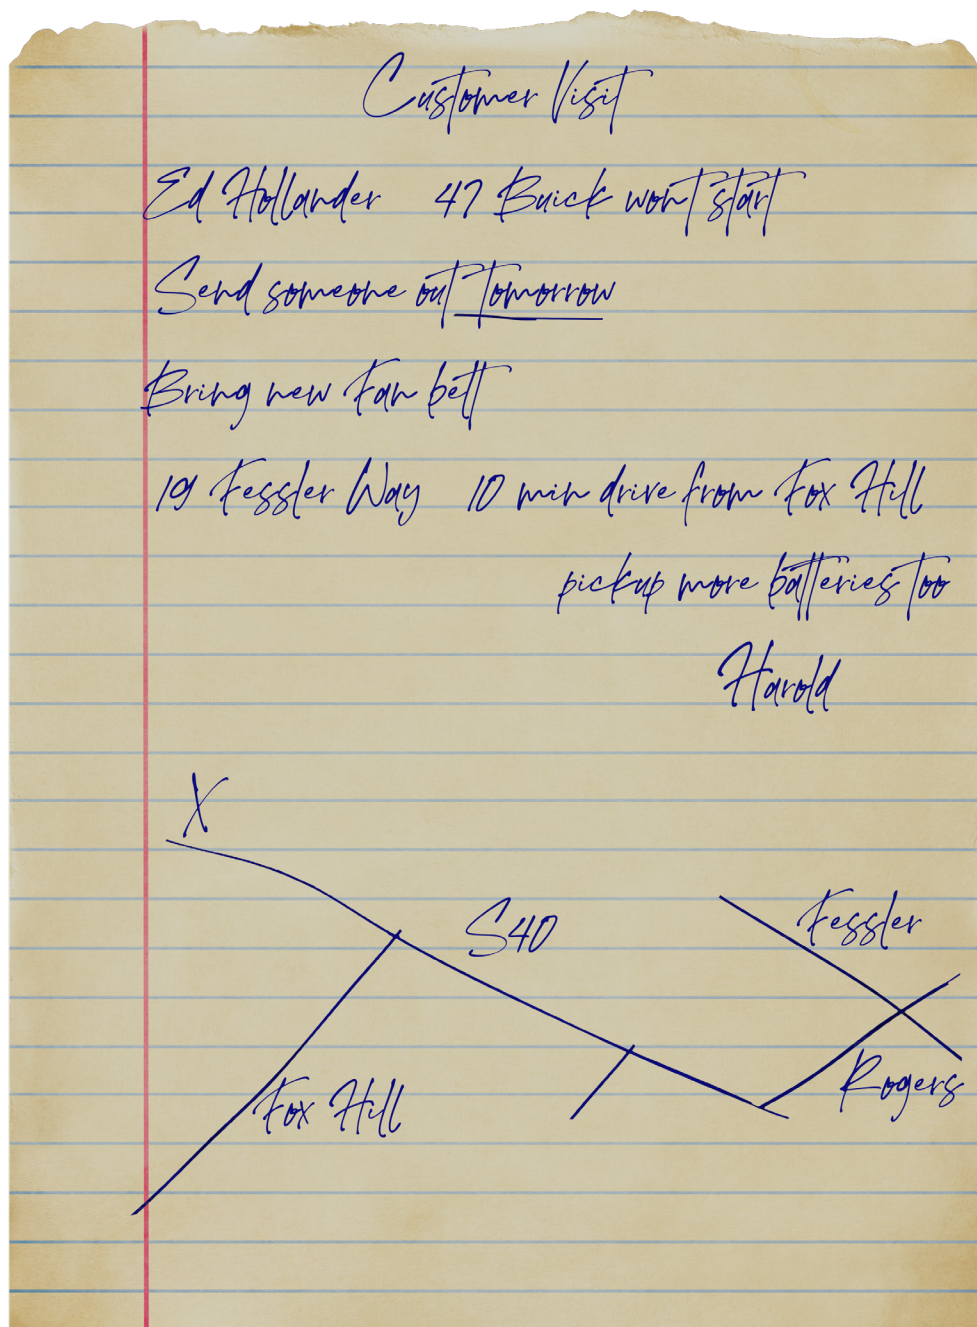 Customer Visit
Ed Hollander 47 Buick wont start
Send someone out tomorrow
Bring new Fan belt
19 Fessler Way 10 min drive from Fox Hill
pickup more batteries too
Harold
X
S40
Fessler
Rogers
Fox Hill